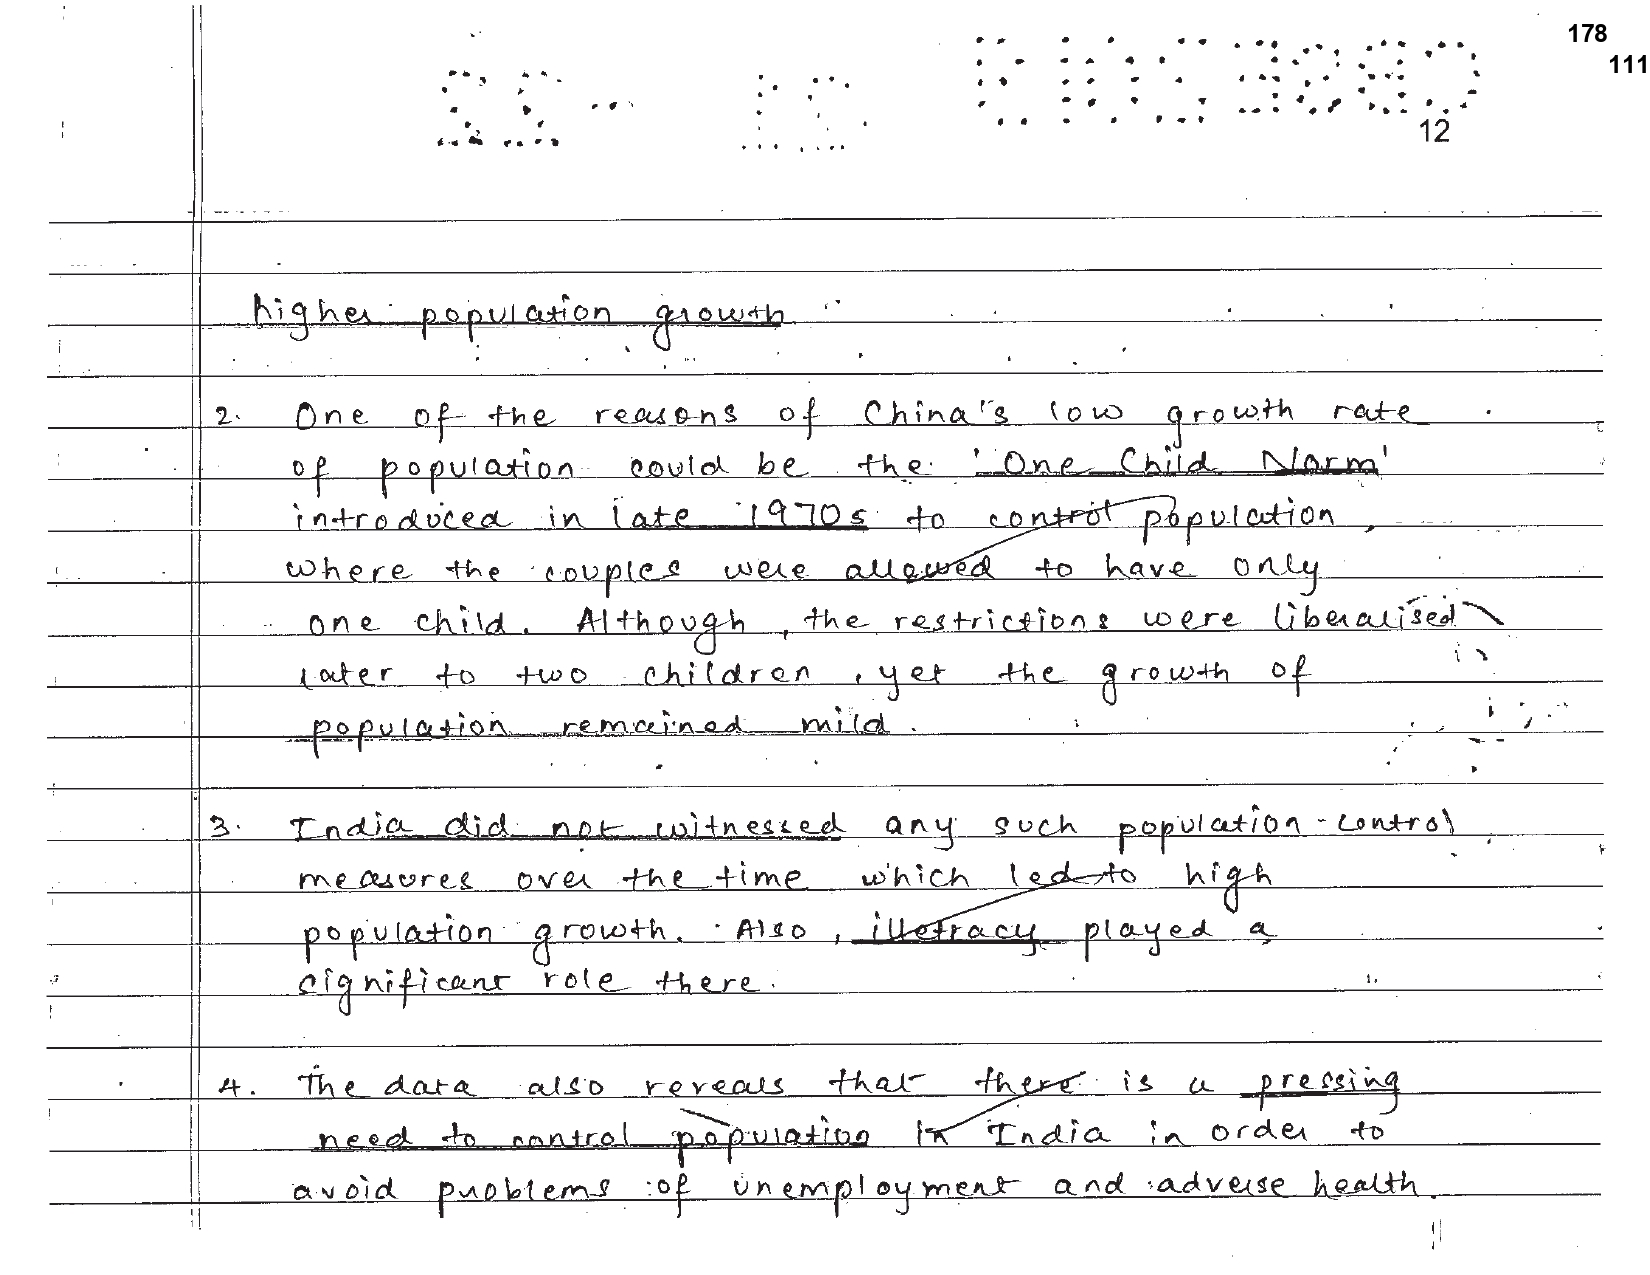 178
111
12
higher population growth
2. One of the reasons of China's low growth rate
of population could be the 'One Child Norm'
introduced in late 1970s to control population,
where the couples were allowed to have only
one child. Although, the restrictions were liberalised
later to two children, yet the growth of
population remained mild.
3. India did not witnessed any such population-control
measures over the time which led to high
population growth. Also, illetracy played a
significant role there.
4. The data also reveals that there is a pressing
need to control population in India in order to
avoid problems of unemployment and adverse health